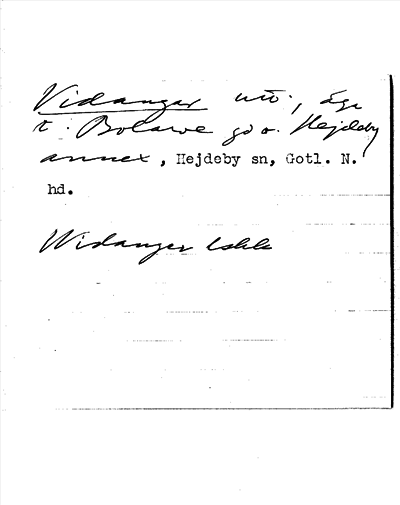 Vidangar utö., äga
t. Bolarve gd o. Hejdeby
annex, Hejdeby sn, Gotl. N.
hd.
Widanger